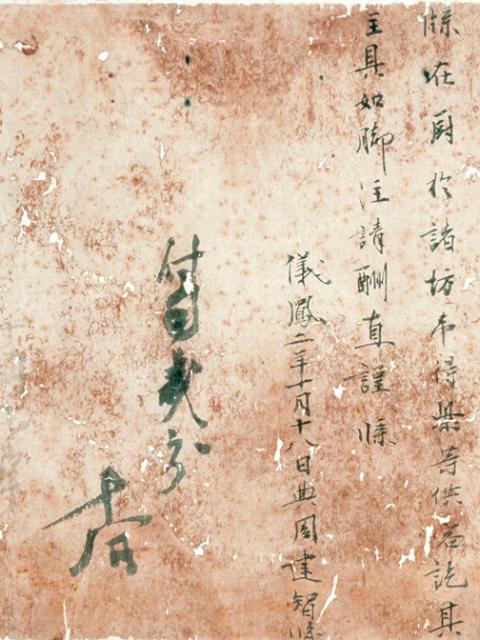 牒在厨於諸坊市得柴等供客訖其
主具如脚注請酬直謹牒
儀鳳二年十月十八日典周建智牒
付司義示
十八日